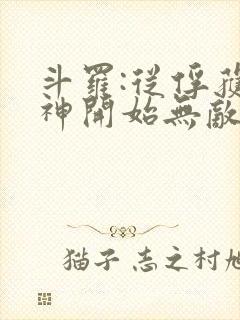 斗羅:從俘獲
神開始無敵
猫子 志之村旭